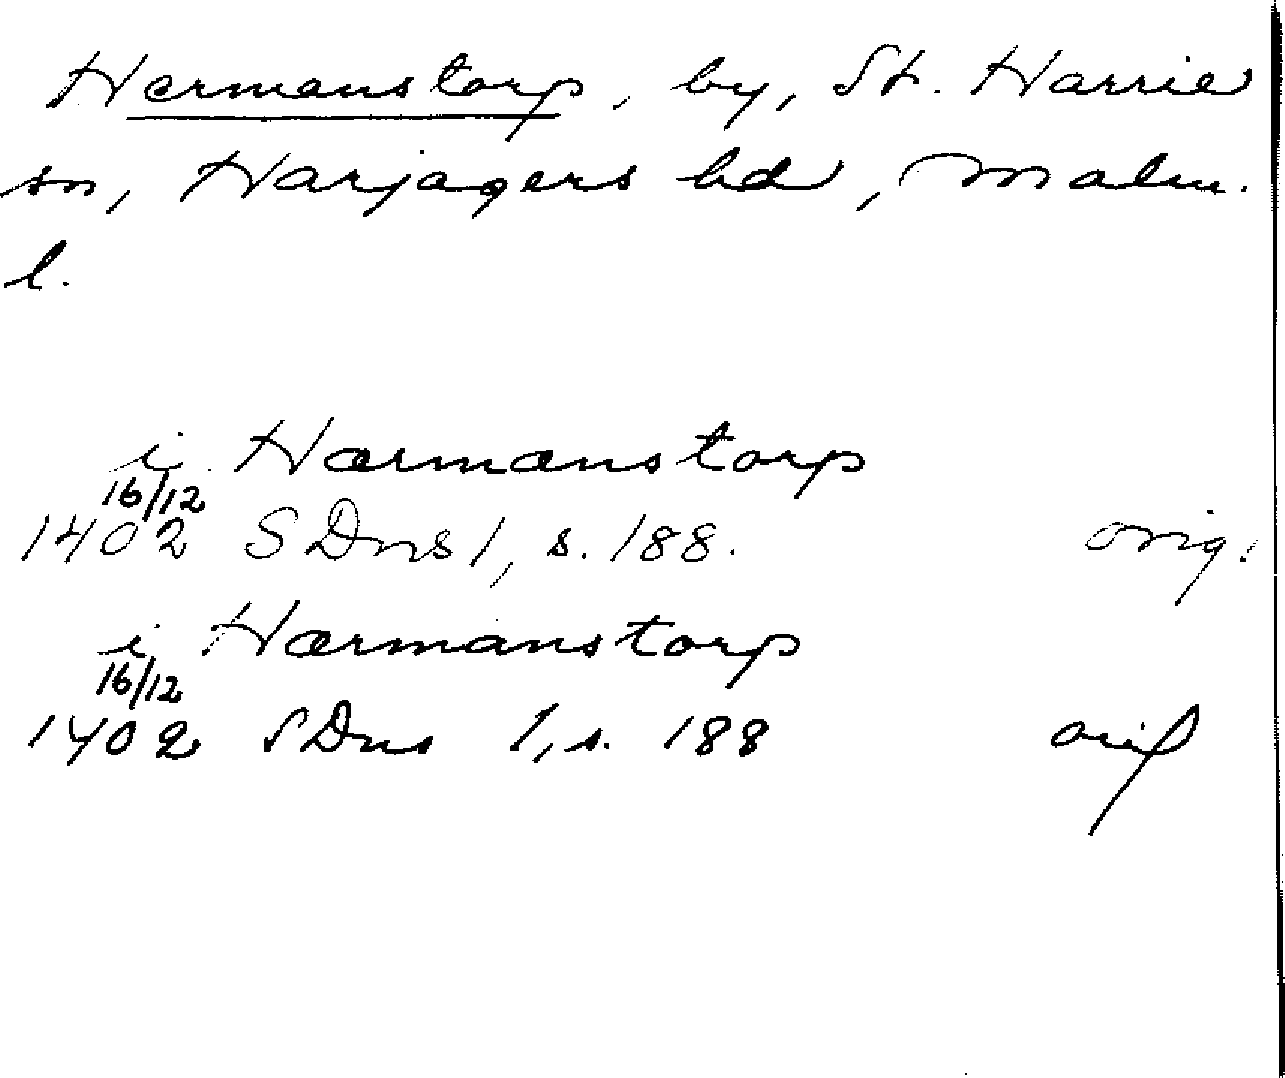 Hermanstorp, by, St. Harrie
sn, Harjagers hd, Malm.
l.
i Hærmanstorp
16/12
1402 SDns 1, s. 188. orig.
i Hærmanstorp
16/12
1402 SDns 1, s. 188 orig